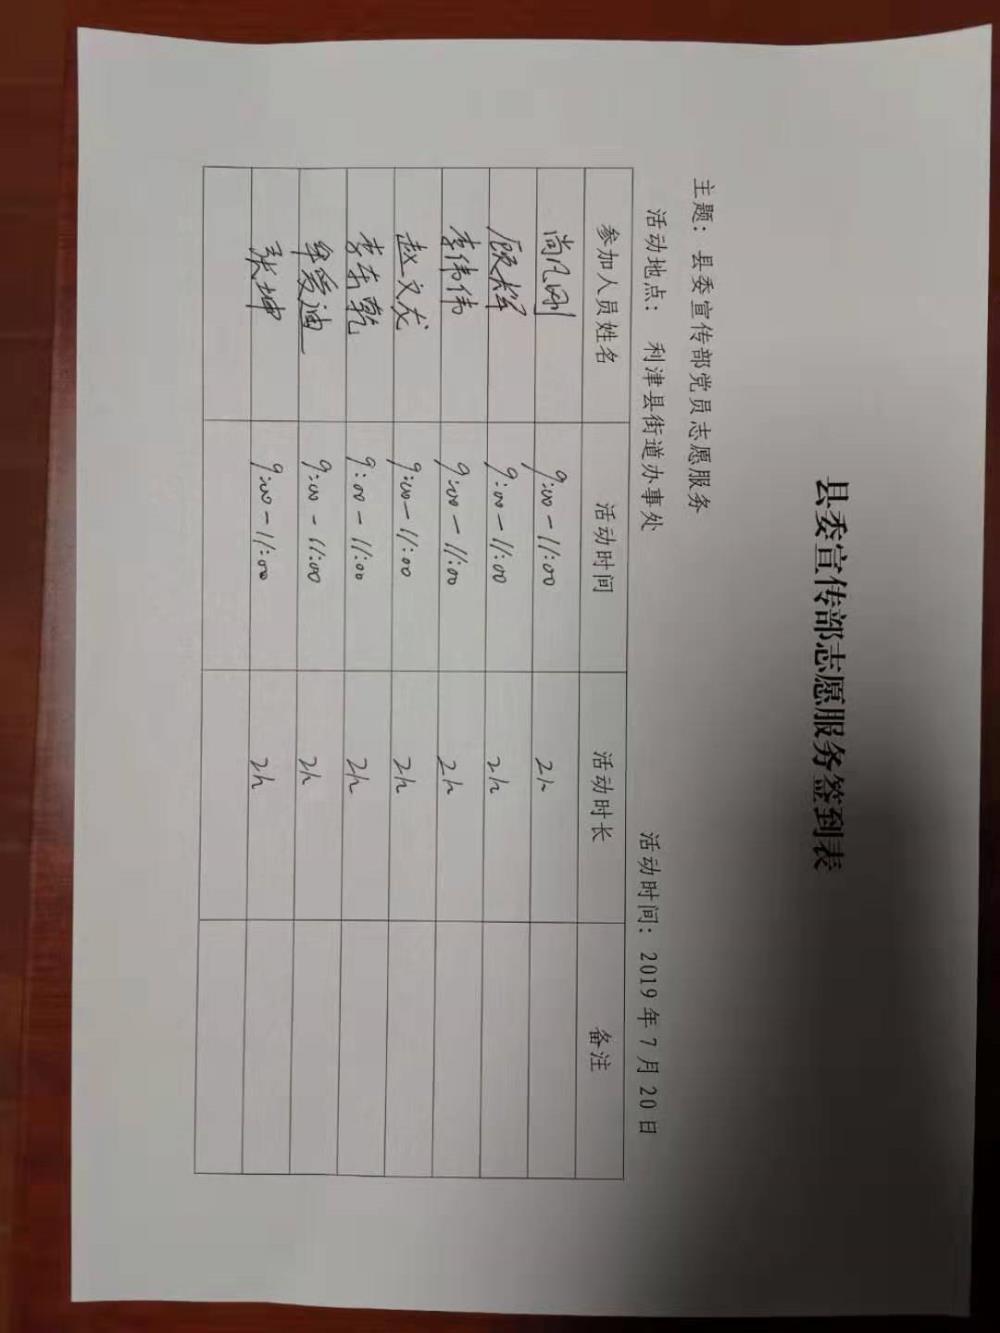 县委宣传部志愿服务签到表
主题：县委宣传部党员志愿服务
活动地点： 利津县街道办事处 活动时间：2019年7月20日
参加人员姓名 活动时间 活动时长 备注
尚凡刚 9:00-11:00 2h
顾辉 9:00-11:00 2h
李伟伟 9:00-11:00 2h
赵文龙 9:00-11:00 2h
李东乾 9:00-11:00 2h
牟爱迪 9:00-11:00 2h
张坤 9:00-11:00 2h